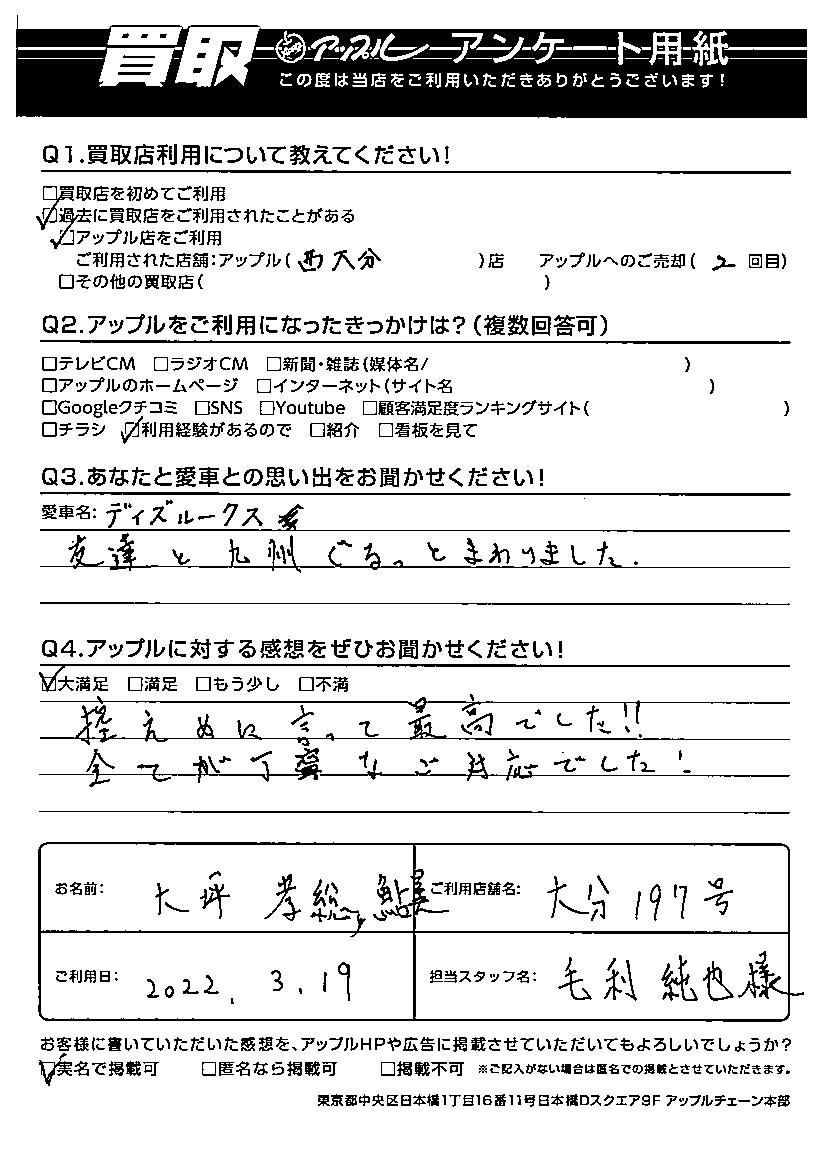 買取 アップル アンケート用紙
この度は当店をご利用いただきありがとうございます!
Q1.買取店利用について教えてください!
□買取店を初めてご利用
☑過去に買取店をご利用されたことがある
☑アップル店をご利用
ご利用された店舗:アップル( 西大分 )店 アップルへのご売却( 2 回目)
□その他の買取店( )
Q2.アップルをご利用になったきっかけは?(複数回答可)
□テレビCM □ラジオCM □新聞・雑誌(媒体名/ )
□アップルのホームページ □インターネット(サイト名 )
□Googleクチコミ □SNS □Youtube □顧客満足度ランキングサイト( )
□チラシ ☑利用経験があるので □紹介 □看板を見て
Q3.あなたと愛車との思い出をお聞かせください!
愛車名: デイズルークス
友達と九州ぐるっとまわりました.
Q4.アップルに対する感想をぜひお聞かせください!
☑大満足 □満足 □もう少し □不満
控えめに言って最高でした!!
全てが丁寧なご対応でした!
お名前: 大坪 孝総 ご利用店舗名: 大分197号
ご利用日: 2022. 3. 19 担当スタッフ名: 毛利純也様
お客様に書いていただいた感想を、アップルHPや広告に掲載させていただいてもよろしいでしょうか?
☑実名で掲載可 □匿名なら掲載可 □掲載不可 ※ご記入がない場合は匿名での掲載とさせていただきます。
東京都中央区日本橋1丁目16番11号日本橋Dスクエア9F アップルチェーン本部